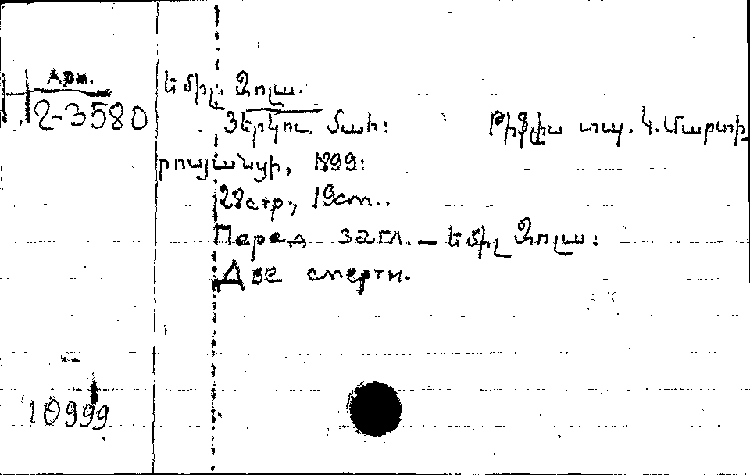 Арм.
2-3580
Եմիլ Զոլա.
Երկու մահ:
Թիֆլիս տպ. Կ. Մարտի
րոսյանցի, 1899:
28 стр., 19 cm..
Перед загл. — Եմիլ Զոլա:
Две смерти.
10999